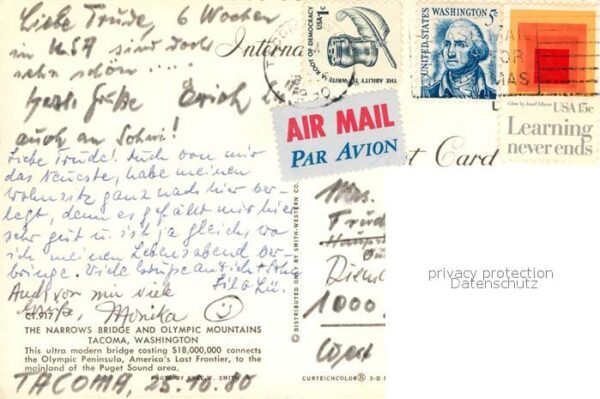 Liebe Trude, 6 Wochen
in USA sind doch
sehr schön ....
herzl. Grüße Erich
auch an Sohni!
Liebe Trude! Auch von mir
das Neueste, habe meinen
Wohnsitz ganz nach hier ver-
legt, denn es gefällt mir hier
sehr gut u. ist ja gleich, wo
ich meinen Lebensabend ver-
bringe. Viele Grüße an dich +
Auch von mir viele
Grüße, Monika
THE NARROWS BRIDGE AND OLYMPIC MOUNTAINS
TACOMA, WASHINGTON
This ultra modern bridge costing $18,000,000 connects
the Olympic Peninsula, America's Last Frontier, to the
mainland of the Puget Sound area.
PHOTO BY
W. SMITH
TACOMA, 25.10.80
Interna
USA 1c
THE ABILITY TO WRITE A ROOT OF DEMOCRACY
UNITED STATES
WASHINGTON 5c
MAIL
FOR
MAS
Glow by Josef Albers
USA 15c
Learning
never ends
AIR MAIL
PAR AVION
t Card
© DISTRIBUTED ONLY BY SMITH-WESTERN CO.
CURTEICHCOLOR® 3-D
Mrs.
Trude
1000
privacy protection
Datenschutz